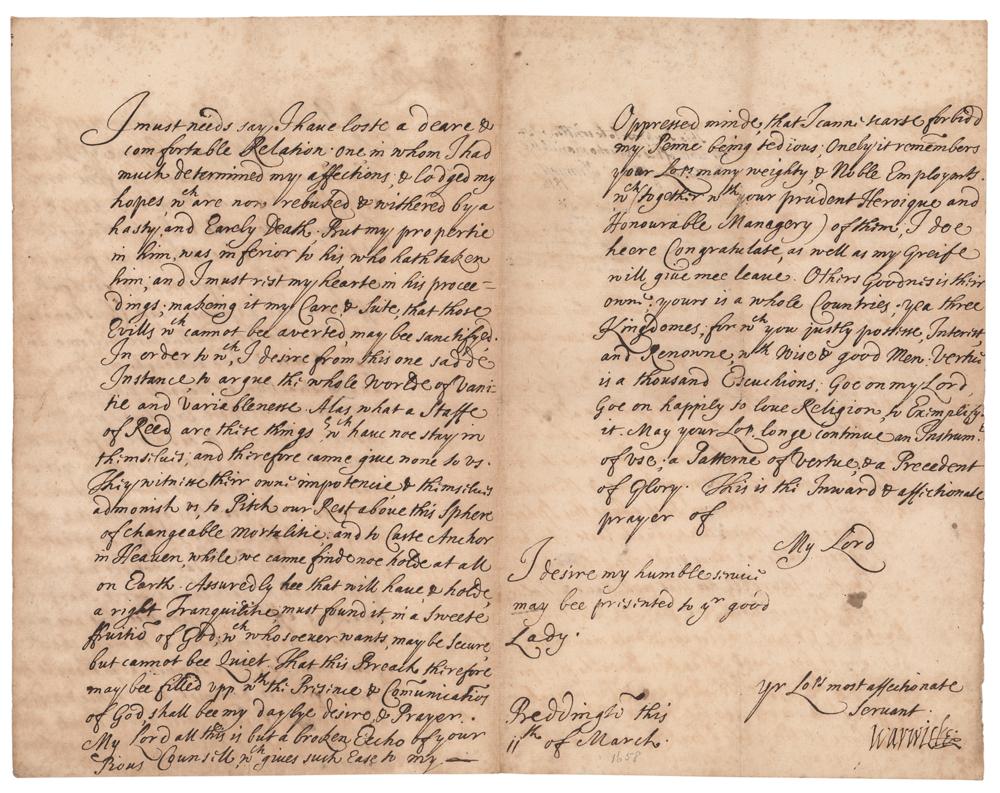 I must needs say, I have loste a deare &
comfortable Relation: one in whom I had
much determined my affections, & lodged my
hopes wch are now rebuked & withered by a
hasty, and Earely Death. But my propertie
in him, was inferior to his who hath taken
him; and I must rest my hearte in his procee=
dings; makeing it my Care & Sute, that those
Evills wch cannot bee averted, may bee sanctifyed.
In order to wch, I desire from this one sadde
Instance to argue the whole Worlde of Vani-
tie and Variablenesse. Alas, what a Staffe
of Reed are these things wch have noe stay in
themselves, and therefore canne give none to us.
They witnesse their owne impotencie & themselves
admonish us to Pitch our Rest above this Sphere
of changeable Mortalitie: and to Caste Anchor
in Heaven, while we canne finde noe holde at all
on Earth. Assuredly hee that will have & holde
a right Tranquilitie, must found it, in a sweete
ffruitiō of God; wch whosoever wants, may be Secure
but cannot bee Quiet. That this Breach therefore
may bee filled upp wth the Presence & Comunicatiōs
of God shall bee my daylye desire, & Prayer.
My Lord all this is but a broken Eccho of your
Pious Counsill, wch gives such Ease to my
Oppressed minde, that I canne scarse forbidd
my Penne being tedious; Onely it remembers
your Lops many weighty, & Noble Employmts.
wch (together wth your prudent Heroique and
Honourable Managery) of them, I doe
heere Congratulate, as well as my Greife
will give mee leave. Others Goodnes is their
owne, yours is a whole Countries; yea three
Kingdomes, for wch you justly possesse, Interest
and Renowne, wth Wise & good Men. Vertue
is a thousand Escuchions; Goe on my Lord,
Goe on happily to love Religion, to Exemplify
it. May your Lop. longe continue an Instrumt.
of use; a Patterne of Vertue, & a Precedent
of Glory. This is the Inward & affectionate
prayer of
My Lord
I desire my humble service
may bee presented to yr good
Lady.
yr Lops most affectionate
Servant.
Warwicke
this
11th of March.
1658